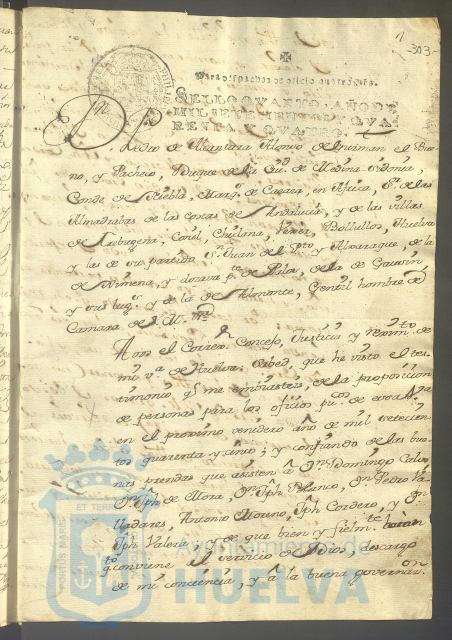 1
303
Para despachos de oficio quatro mrs.
SELLO QVARTO, AÑO DE
MIL SETECIENTOS Y QVA-
RENTA Y QVATRO.
Dn Pedro de Alcantara Alonso de Guzman el Bue
no, y Pacheco, Duque de la Ciud. de Medina Sidonia,
Conde de Niebla, Marqs. de Cazaza, en Africa, Sr. de las
Almadrabas de las costas de Andalucia, y de las villas
de Trebugena, Conil, Chiclana, Vexer, Bollullos, Huelva
y las de su partido Sn. Juan del Pto. y Aljaraque, de la
de Ximena, y dozava pte. de Palos, de la de Gausin,
y sus lugs. y de la de Almonte, Gentil hombre de
Camara de S. M.
A vos el Correxr. Concejo, Justicia y reximto. de
mi va. de Huelva: Sabed que he visto el tes
timonio qe me embiasteis, de la proposicion
de personas para los oficios pucos. de essa Va.
en el proximo venidero año de mil setecien
tos quarenta y cinco; y confiando de las bue
nas prendas que asisten a Dn. Domingo
Dn. Jph de Mora, Dn. Jph Blanco, Dn. Pedro Va
lladares, Antonio Moreno, Jph Cordero, y Dn
Jph Valera; y de que bien y fielmte. haran
qto conviene al servicio de Dios, descargo
de mi conciencia, y a la buena governaon.
ET TERRÆ
PORTUS MARIS
Ayuntamiento de
HUELVA